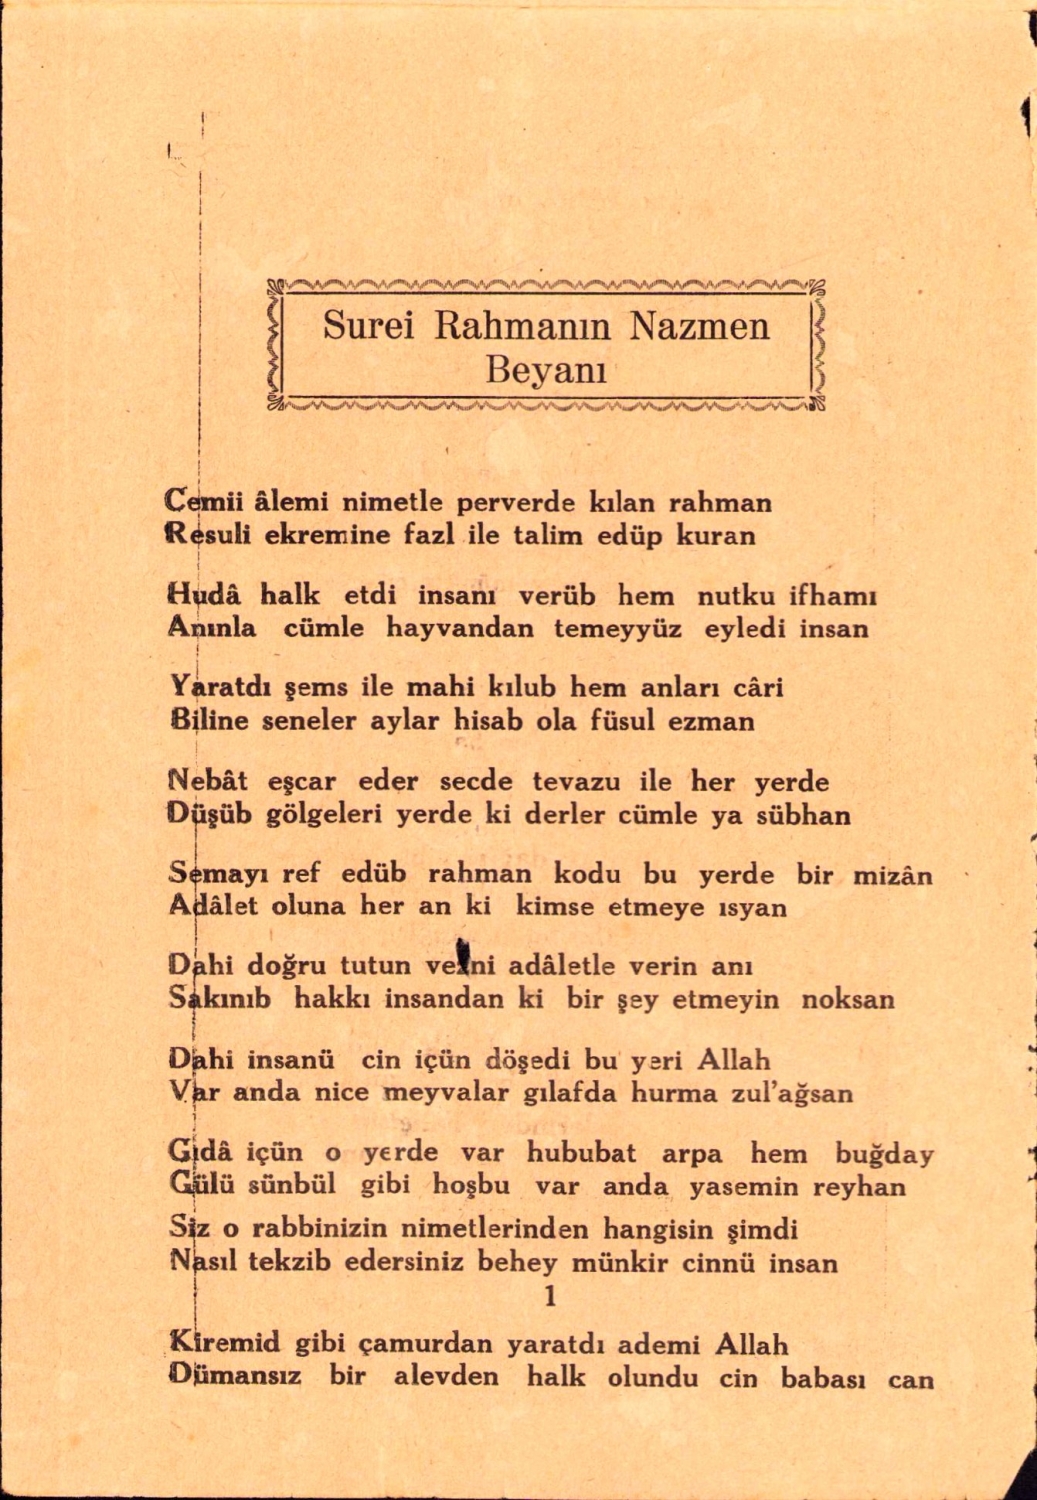 Surei Rahmanın Nazmen
Beyanı
Cemii âlemi nimetle perverde kılan rahman
Resuli ekremine fazl ile talim edüp kuran
Hudâ halk etdi insanı verüb hem nutku ifhamı
Anınla cümle hayvandan temeyyüz eyledi insan
Yaratdı şems ile mahi kılub hem anları câri
Biline seneler aylar hisab ola füsul ezman
Nebât eşcar eder secde tevazu ile her yerde
Düşüb gölgeleri yerde ki derler cümle ya sübhan
Semayı ref edüb rahman kodu bu yerde bir mizân
Adâlet oluna her an ki kimse etmeye ısyan
Dahi doğru tutun vezni adâletle verin anı
Sakınıb hakkı insandan ki bir şey etmeyin noksan
Dahi insanü cin içün döşedi bu yeri Allah
Var anda nice meyvalar gılafda hurma zul'ağsan
Gıdâ içün o yerde var hububat arpa hem buğday
Gülü sünbül gibi hoşbu var anda yasemin reyhan
Siz o rabbinizin nimetlerinden hangisin şimdi
Nasıl tekzib edersiniz behey münkir cinnü insan
1
Kiremid gibi çamurdan yaratdı ademi Allah
Dümansız bir alevden halk olundu cin babası can